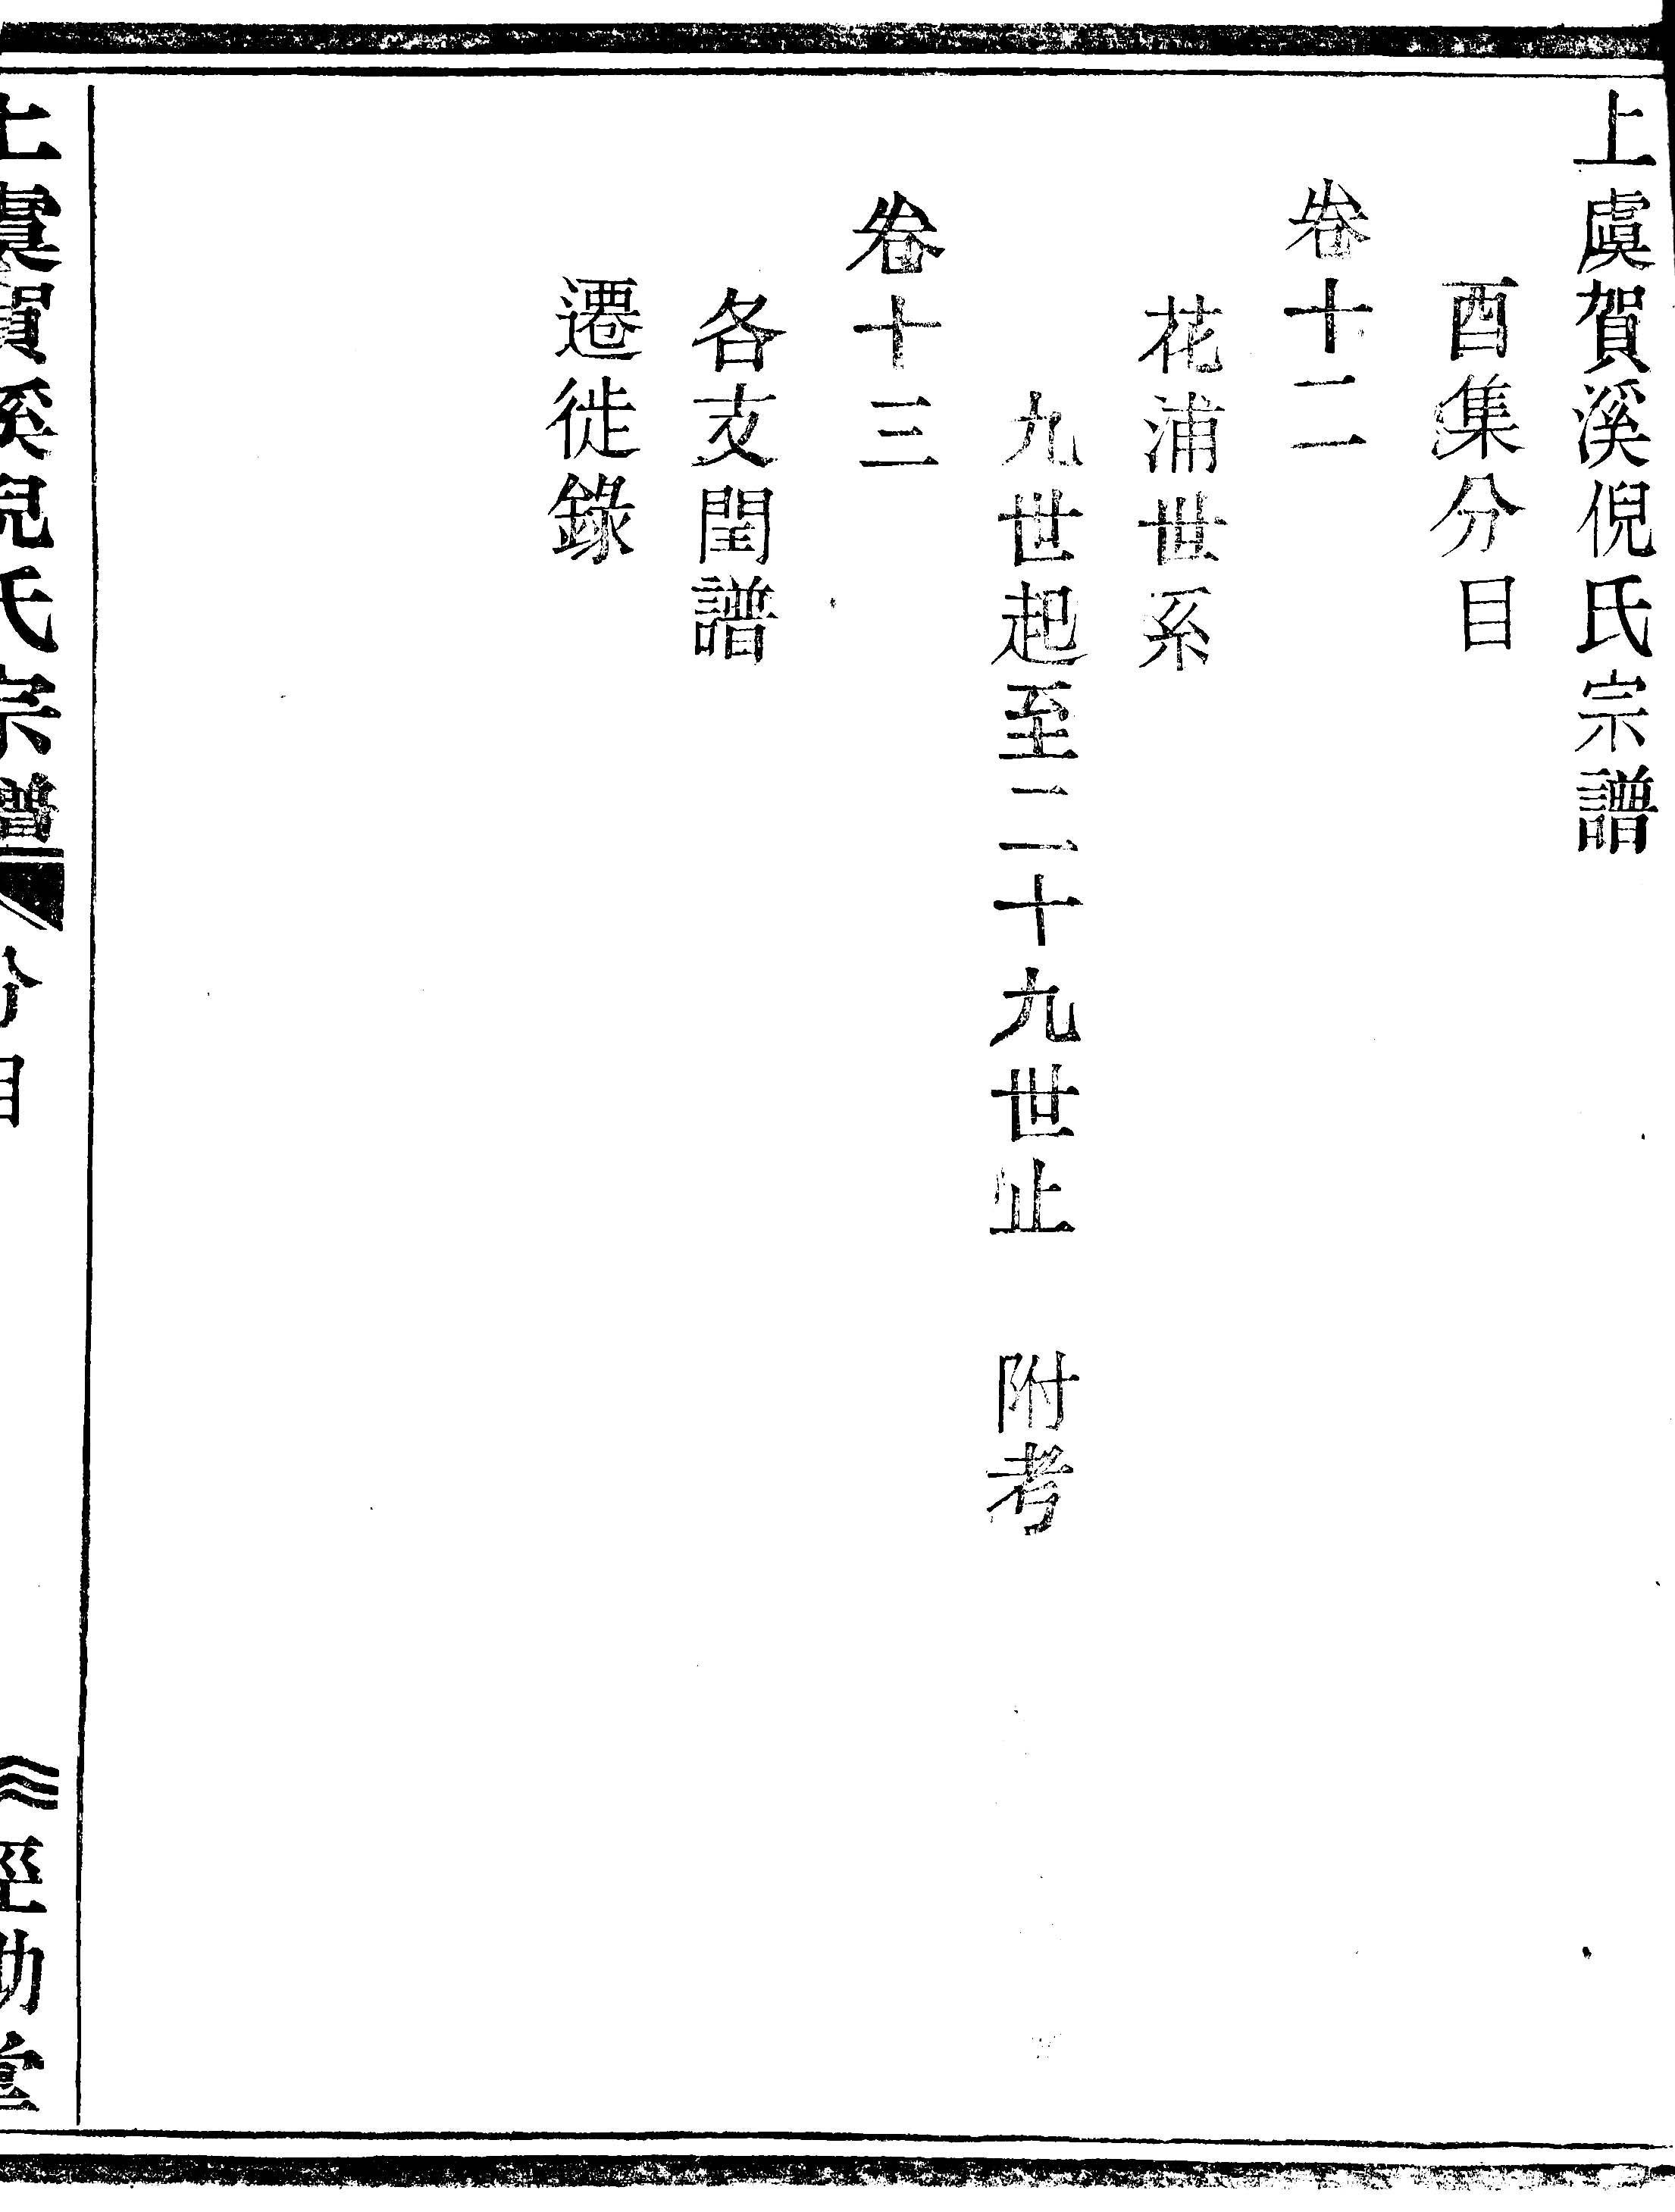 上虞賀溪倪氏宗譜
酉集分目
卷十二
花浦世系
九世起至二十九世止　附考
卷十三
各支閏譜
遷徙錄
上虞賀溪倪氏宗譜　分目　經勳堂